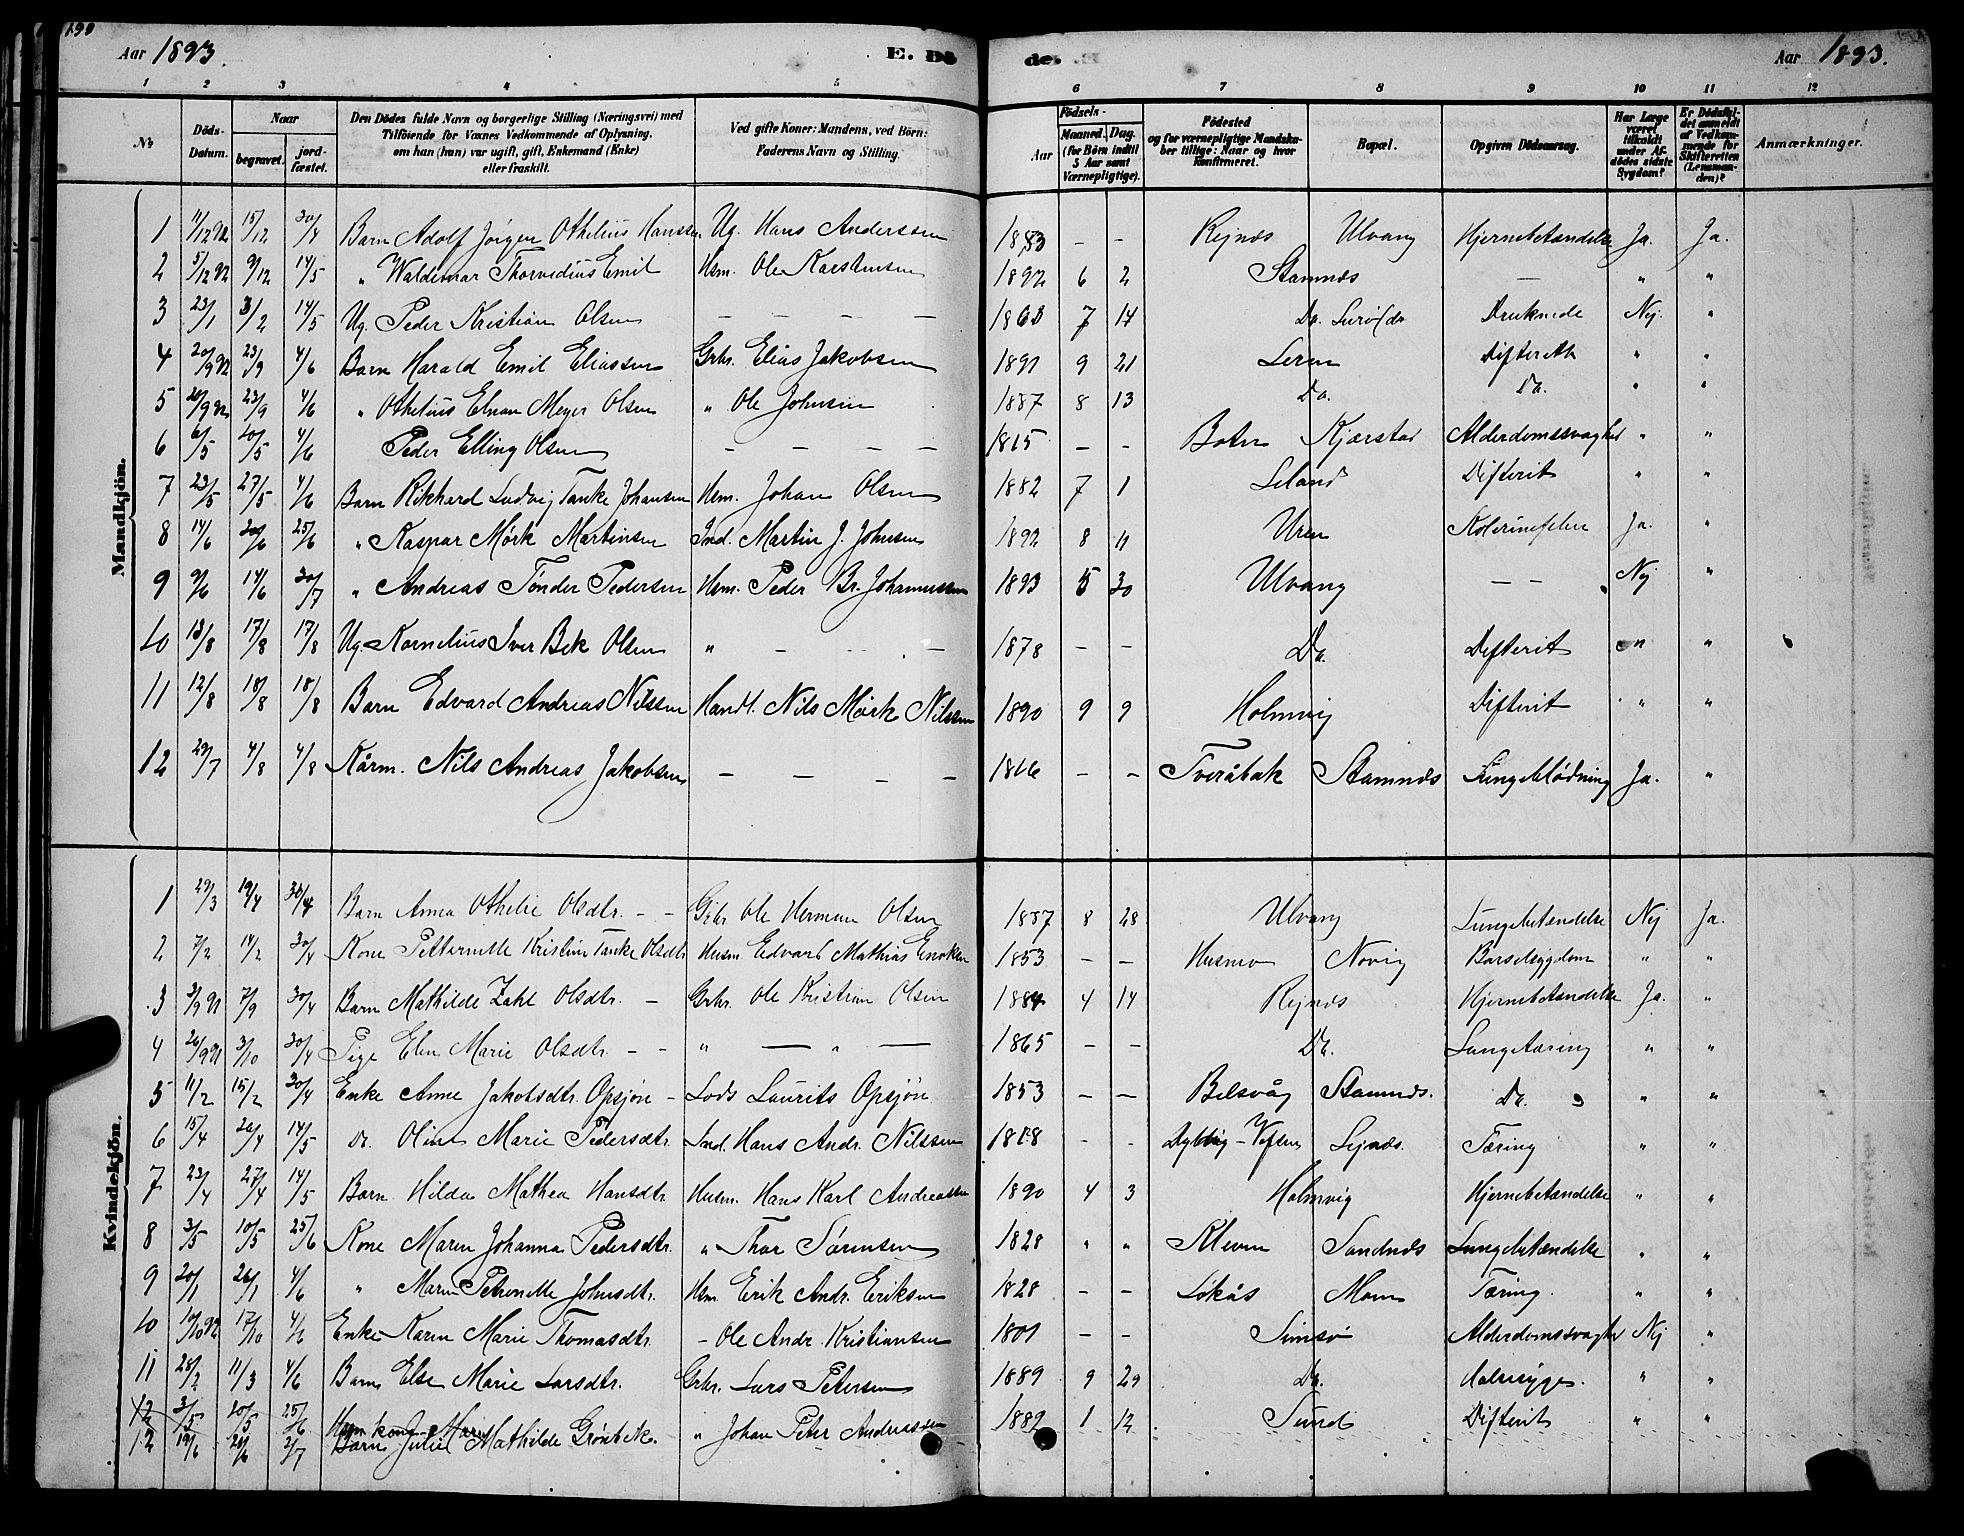 190
Aar 1893. E. Dö de. Aar 1893.
1 2 3 4 5 6 7 8 9 10 11 12
No Döds-Datum. Naar begravet. jordfæstet. Den Dödes fulde Navn og borgerlige Stilling (Næringsvei) med Tilföiende for Voxnes Vedkommende af Oplysning, om han (hun) var ugift, gift, Enkemand (Enke) eller fraskilt. Ved gifte Koner: Mandens, ved Börn: Faderens Navn og Stilling. Födsels- Aar Maaned. Dag. (for Börn indtil 5 Aar samt Værnepligtige). Födested og for værnepligtige Mandskaber tillige: Naar og hvor konfirmeret. Bopæl. Opgiven Dödsaarsag. Har Læge været tilkaldt under Afdödes sidste Sygdom? Er Dödsfaldet anmeldt af Vedkommende for Skifteretten (Lensmanden)? Anmærkninger.
Mandkjön.
1 11/12 92 15/12 30/4 Barn Adolf Jörgen Othelius Hanssen Ug. Hans Anderssen 1883 - - Rejnæs Ulvang Hjernebetændelse Ja. Ja.
2 5/12 92 9/12 14/5 " Waldemar Thorvedius Emil Hsm. Ole Karstensen 1892 6 2 Stamnæs — " "
3 23/1 3/2 14/5 Ug. Peder Kristian Olsen — — — — 1868 7 14 Do. Druknede Nej. "
4 20/9 92 23/9 4/6 Barn Harald Emil Eliassen Grbr. Elias Jakobsen 1891 9 21 Leren " "
5 20/9 92 23/9 4/6 " Othelius Elnan Meyer Olsen " Ole Johnsen 1887 8 13 Do. Do. " "
6 6/5 20/5 4/6 Peder Elling Olsen — — — — 1815 — — Botn Kjærstad Alderdomssvaghed " "
7 23/5 27/5 4/6 Barn Rikhard Ludvig Tanke Johansen Hsm. Johan Olsen 1882 7 1 Leland Difterit " "
8 14/6 20/6 25/6 " Kaspar Mörk Martinsen Ind. Martin J. Johnsen 1892 8 11 Uren Kolerinefeber Ja. "
9 9/6 14/6 30/7 " Andreas Tönder Pedersen Hsm. Peder Br. Johannessen 1893 5 30 Ulvang — — Nej "
10 13/8 17/8 17/8 Ug. Kornelius Iver Bek Olsen " — — — 1878 — — Do. Difterit " "
11 12/8 18/8 18/8 Barn Edvard Andreas Nilssen Handl. Nils Mörk Nilssen 1890 9 9 Holmvig Difterit " "
12 29/7 4/8 4/8 Kårm. Nils Andreas Jakobsen — — — — 1816 — — Tveråbak Stamnæs Lungeblödning Ja. "
Kvindekjön.
1 29/3 19/4 30/4 Barn Anna Othelie Olsdtr. — — Grbr. Ole Herman Olsen 1887 8 28 Ulvang Lungebetændelse Nej Ja.
2 7/2 14/2 30/4 Kone Petternille Kristine Tanke Olsdtr. Husm. Edvard Mathias Enoksen 1853 — — Husmo Novig Barselsygdom " "
3 3/9 91 7/9 30/4 Barn Mathilde Zahl Olsdtr. — Grbr. Ole Kristian Olsen 1884 4 14 Rejnæs Hjernebetændelse Ja. "
4 26/9 91 3/10 30/4 Pige Elen Marie Olsdtr — — " — " — 1865 — — Do. Lungetæring " "
5 11/2 15/2 30/4 Enke Anne Jakobsdtr. Opsjön — Lods Laurits Opsjön 1853 — — Belsvåg Stamnæs. Do. " "
6 15/4 20/4 14/5 Do. Oline Marie Pedersdtr. Ind. Hans Andr. Nilssen 1818 - - Dybvig-Vefsen Lejnæs. Tæring " "
7 23/4 27/4 14/5 Barn Hilda Mathea Hansdtr. Husm. Hans Karl Andreassen 1890 4 3 Holmvig Hjernebetændelse " "
8 3/5 10/5 25/6 Kone Maren Johanna Pedersdtr. " Thor Sörensen 1828 " " Kleven Sandnæs Lungebetændelse " "
9 20/1 26/1 4/6 " Maren Petronille Johnsdtr. Hsm. Erik Andr. Eriksen 1828 — — Lökås Moen Tæring. " "
10 10/10 92 17/10 4/6 Enke Karen Marie Thomasdtr. - Ole Andr. Kristiansen 1801 — — Simsö Alderdomssvaghed Nej "
11 28/2 11/3 4/6 Barn Else Marie Larsdtr. Grbr. Lars Petersen 1889 9 29 Do. Halssyge. " "
12 3/5 20/5 25/6 Hsm. kone Maren
12 19/6 26/6 2/7 Barn Julie Mathilde Grönbek. " Johan Peter Anderssen 1882 1 12 Sund Difterit " "